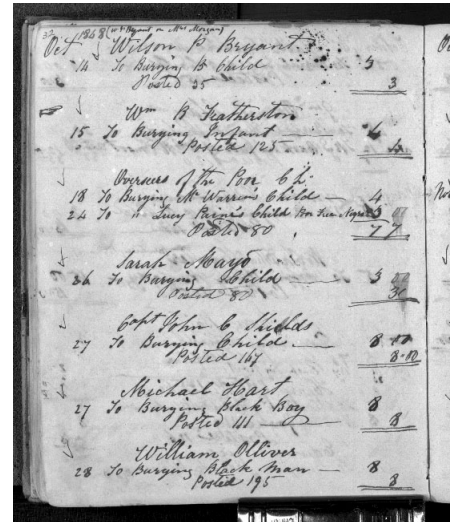 Oct 1848 (W P Bryant on Mrs Morgan)
Wilson P Bryant
14 To Burying B Child 3
Posted 35 3
Wm B Featherston
15 To Burying Infant 4
Posted 125 4
Overseers of the Poor Ch.
18 To Burying Mr Warrins Child 4
24 To " Lucy Paine's Child Bon Free Negro 3 00
Posted 80 7 7
Sarah Mayo
26 To Burying Child 3 00
Posted 80 3
Capt John C Shields
27 To Burying Child 8 00
Posted 167 8-00
Michael Hart
27 To Burying Black Boy 8
Posted 111 8
William Olliver
28 To Burying Black Man 8
Posted 195 8